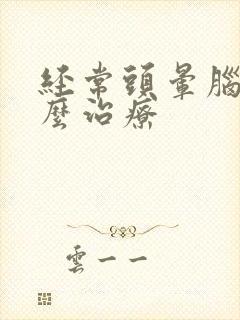 經常頭暈腦
麼治療
雲一一